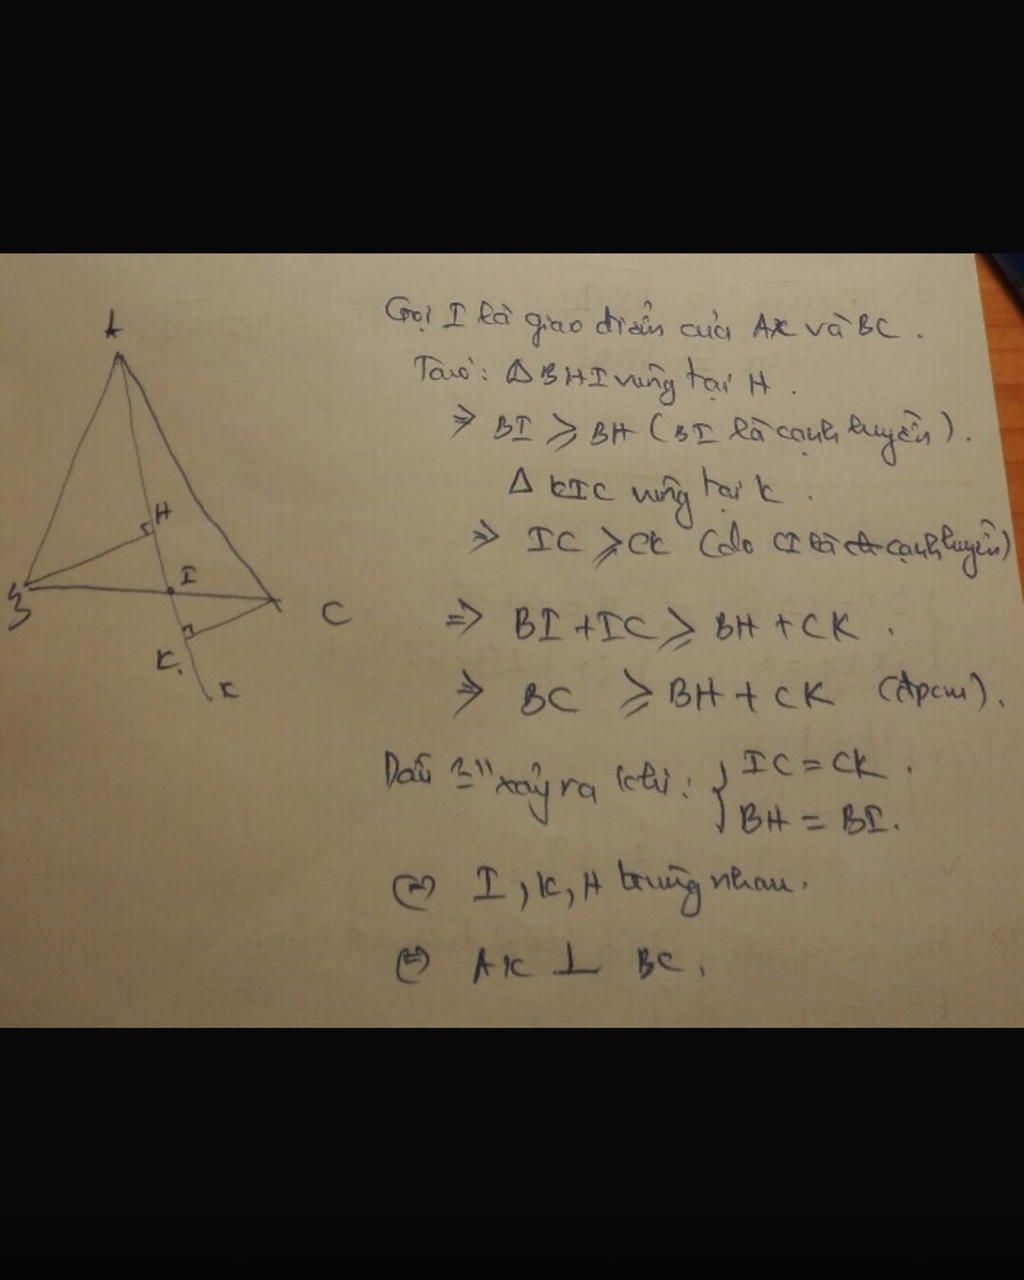 A
H
I
B
C
K
x
Gọi I là giao điểm của Ax và BC.
Ta có: Δ BHI vuông tại H.
⇒ BI ⩾ BH (BI là cạnh huyền).
Δ KIC vuông tại K.
⇒ IC ⩾ CK (do CI là cạnh huyền)
⇒ BI + IC ⩾ BH + CK.
⇒ BC ⩾ BH + CK (đpcm).
Dấu "=" xảy ra khi: { IC = CK.
BH = BI.
⇔ I, K, H trùng nhau.
⇔ Ax ⊥ BC.